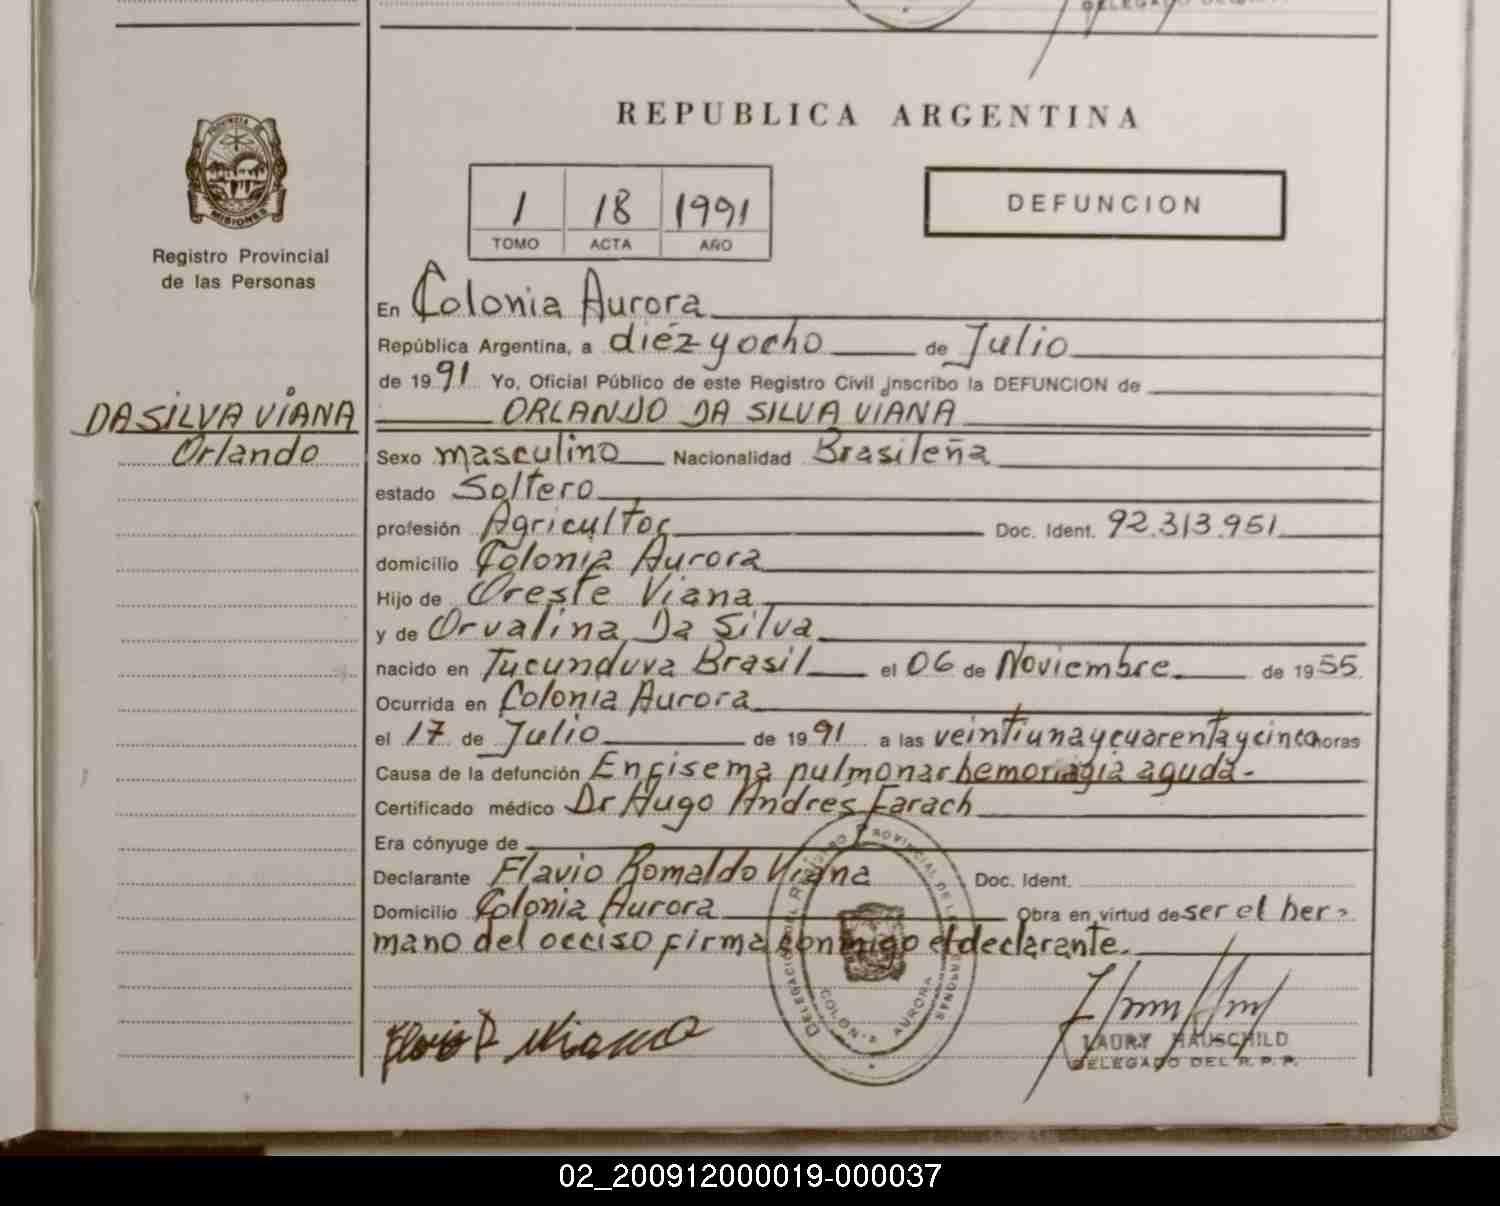 REPUBLICA ARGENTINA
PROVINCIA DE
MISIONES
Registro Provincial
de las Personas
1 18 1991
TOMO ACTA AÑO
DEFUNCION
En Colonia Aurora
República Argentina, a diéz y ocho de Julio
de 1991 Yo, Oficial Público de este Registro Civil inscribo la DEFUNCION de
DA SILVA VIANA
Orlando
ORLANDO DA SILVA VIANA
Sexo masculino Nacionalidad Brasileña
estado Soltero
profesión Agricultor Doc. Ident. 92.313.951
domicilio Colonia Aurora
Hijo de Oreste Viana
y de Orvalina Da Silva
nacido en Tucunduva Brasil el 06 de Noviembre de 1955.
Ocurrida en Colonia Aurora
el 17 de Julio de 1991 a las veintiuna y cuarenta y cinco horas
Causa de la defunción Enfisema pulmonar hemorragia aguda-
Certificado médico Dr Hugo Andrés Farach
Era cónyuge de
Declarante Flavio Romaldo Viana Doc. Ident.
Domicilio Colonia Aurora Obra en virtud de ser el her-
mano del occiso firma conmigo el declarante.
DELEGACION DEL REGISTRO PROVINCIAL DE LAS PERSONAS
COLONIA AURORA
Flavio R Viana
LAURY HAUSCHILD
DELEGADO DEL R. P. P.
02_200912000019-000037